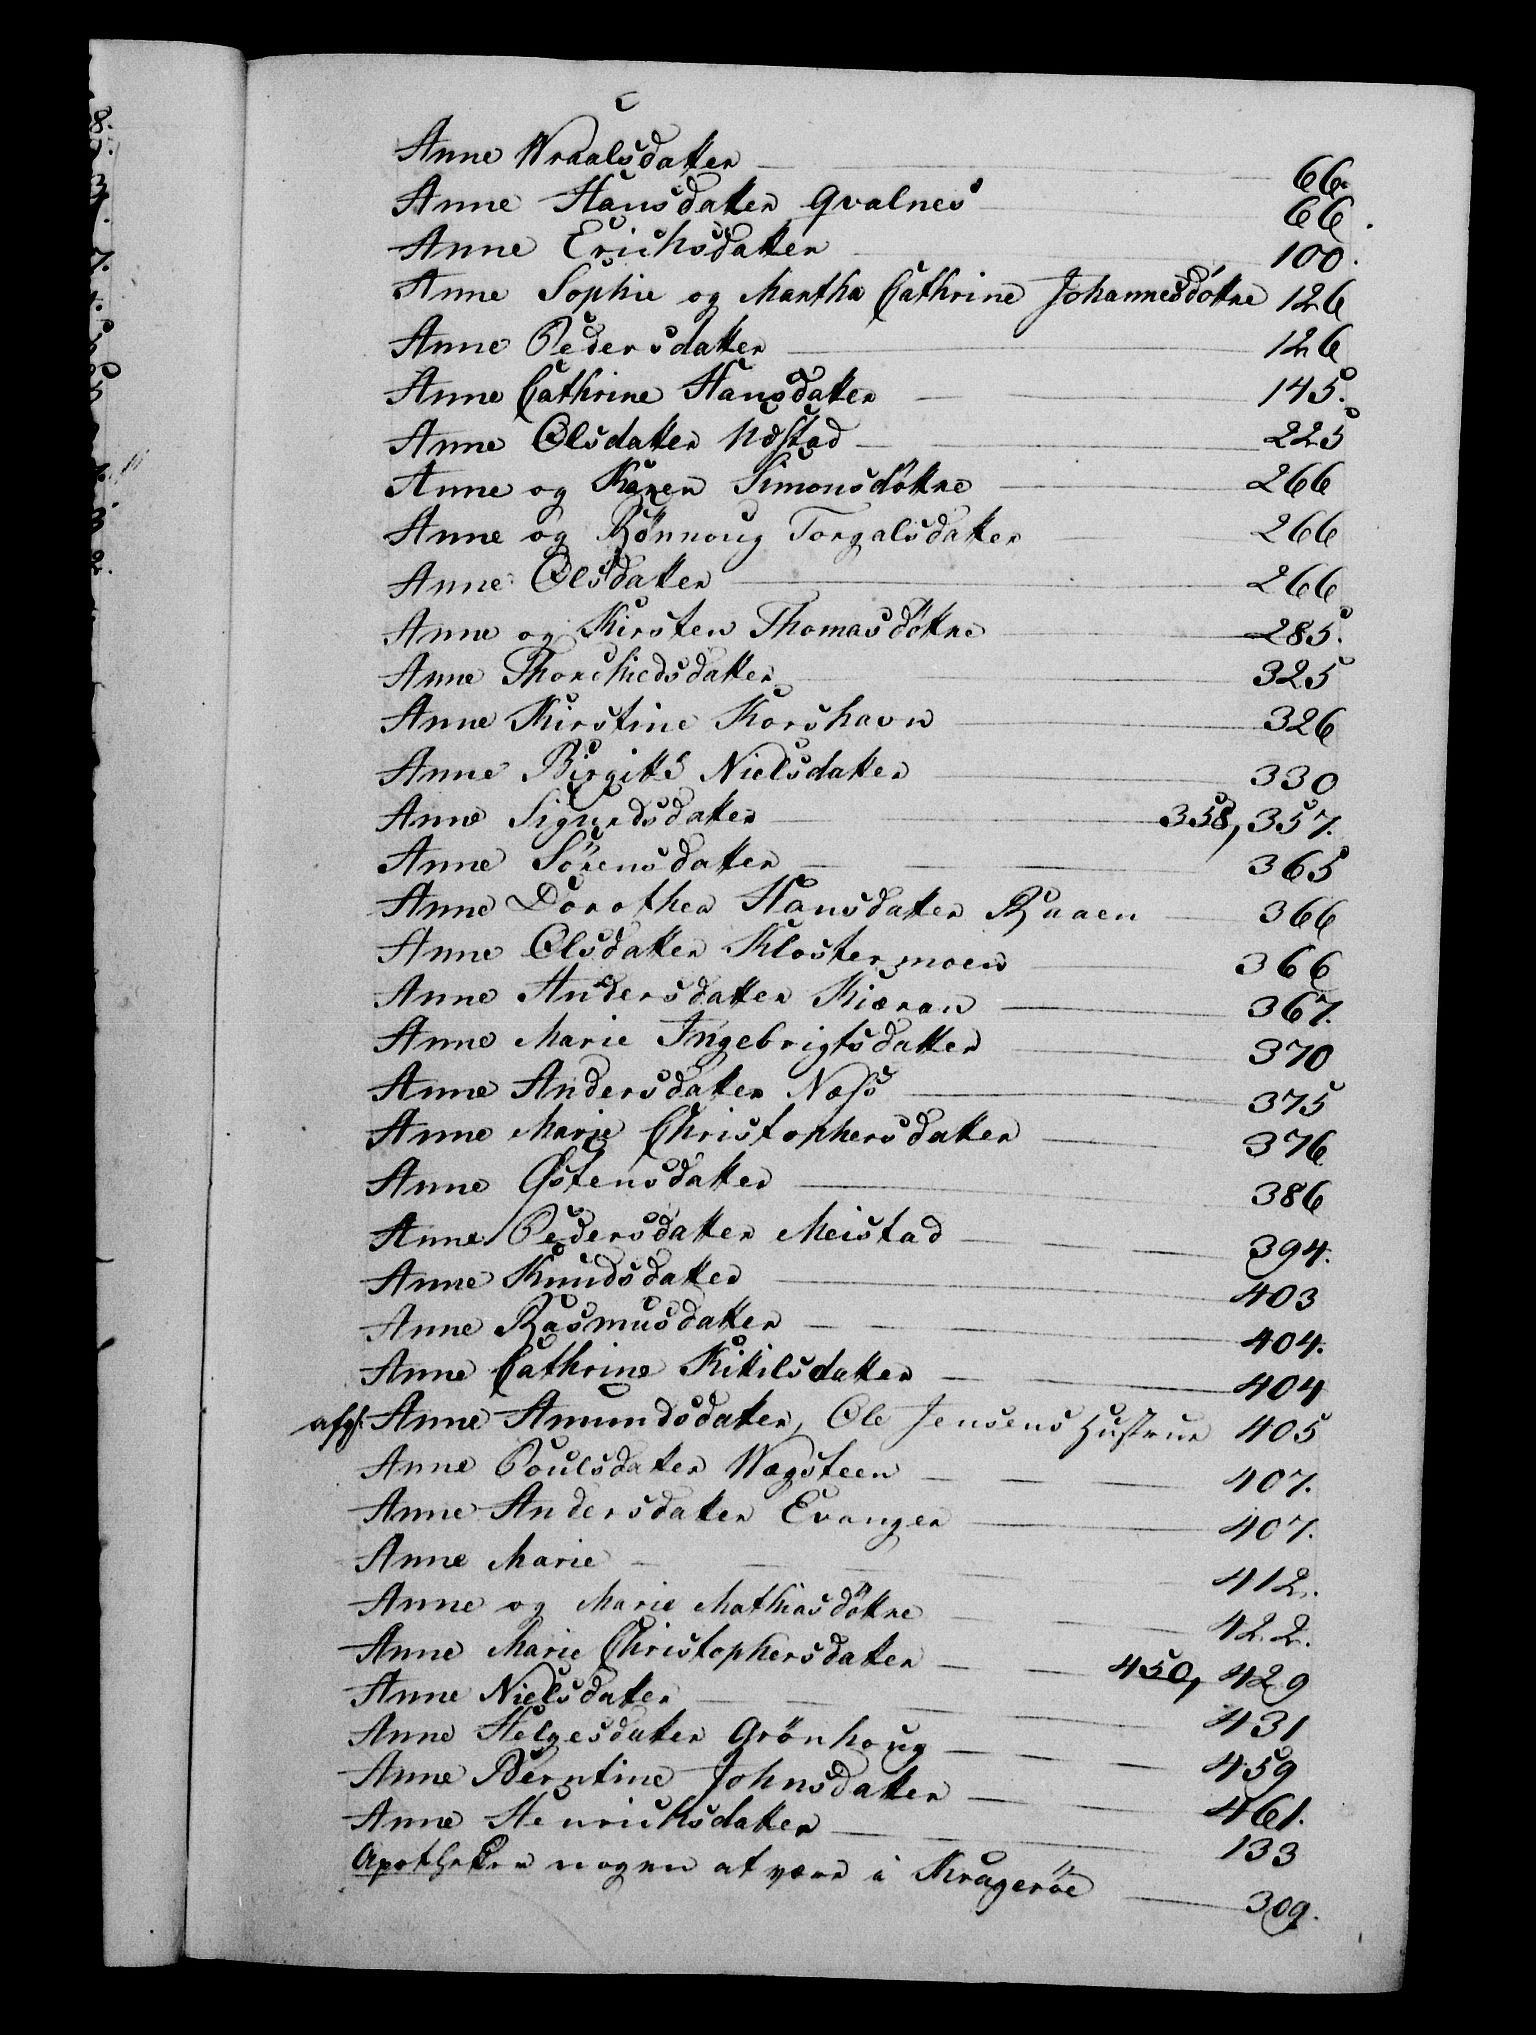 Anne Wraalsdatter 66.
Anne Hansdatter Qvalnes 66.
Anne Erichsdatter 100.
Anne Sophie og Martha Cathrine Johannesdøttre 126
Anne Pedersdatter 126
Anne Cathrine Hansdatter 145.
Anne Olsdatter Næstad 225
Anne og Karen Simonsdøttre 266
Anne og Rönnoug Torgalsdatter 266
Anne Olsdatter 266
Anne og Kirsten Thomasdöttre 285.
Anne Thorchiedsdatter 325
Anne Kirstine Korshavn 326
Anne Birgitte Nielsdatter 330
Anne Sigurdsdatter 358, 357.
Anne Sörensdatter 365
Anne Dorothea Hansdatter Ruaen 366
Anne Olsdatter Klostermoen 366
Anne Andersdatter Kiæran 367.
Anne Marie Ingebrigtsdatter 370
Anne Andersdatter Næss 375
Anne Marie Christophersdatter 376
Anne Östensdatter 386
Anne Pedersdatter Meistad 394.
Anne Knudsdatter 403
Anne Rasmusdatter 404.
Anne Cathrine Kittilsdatter 404
afg. Anne Amundsdatter, Ole Jensens Hustrue 405
Anne Poulsdatter Wægsteen 407.
Anne Andersdatter Evanger 407.
Anne Marie 412.
Anne og Marie Mathiasdöttre 422.
Anne Marie Christophersdatter 450, 429
Anne Nielsdatter 431
Anne Helgesdatter Grönhoug 459
Anne Berntine Johnsdatter 461.
Anne Henrichsdatter 133
Apotheker nogen at være i Krageröe 309.